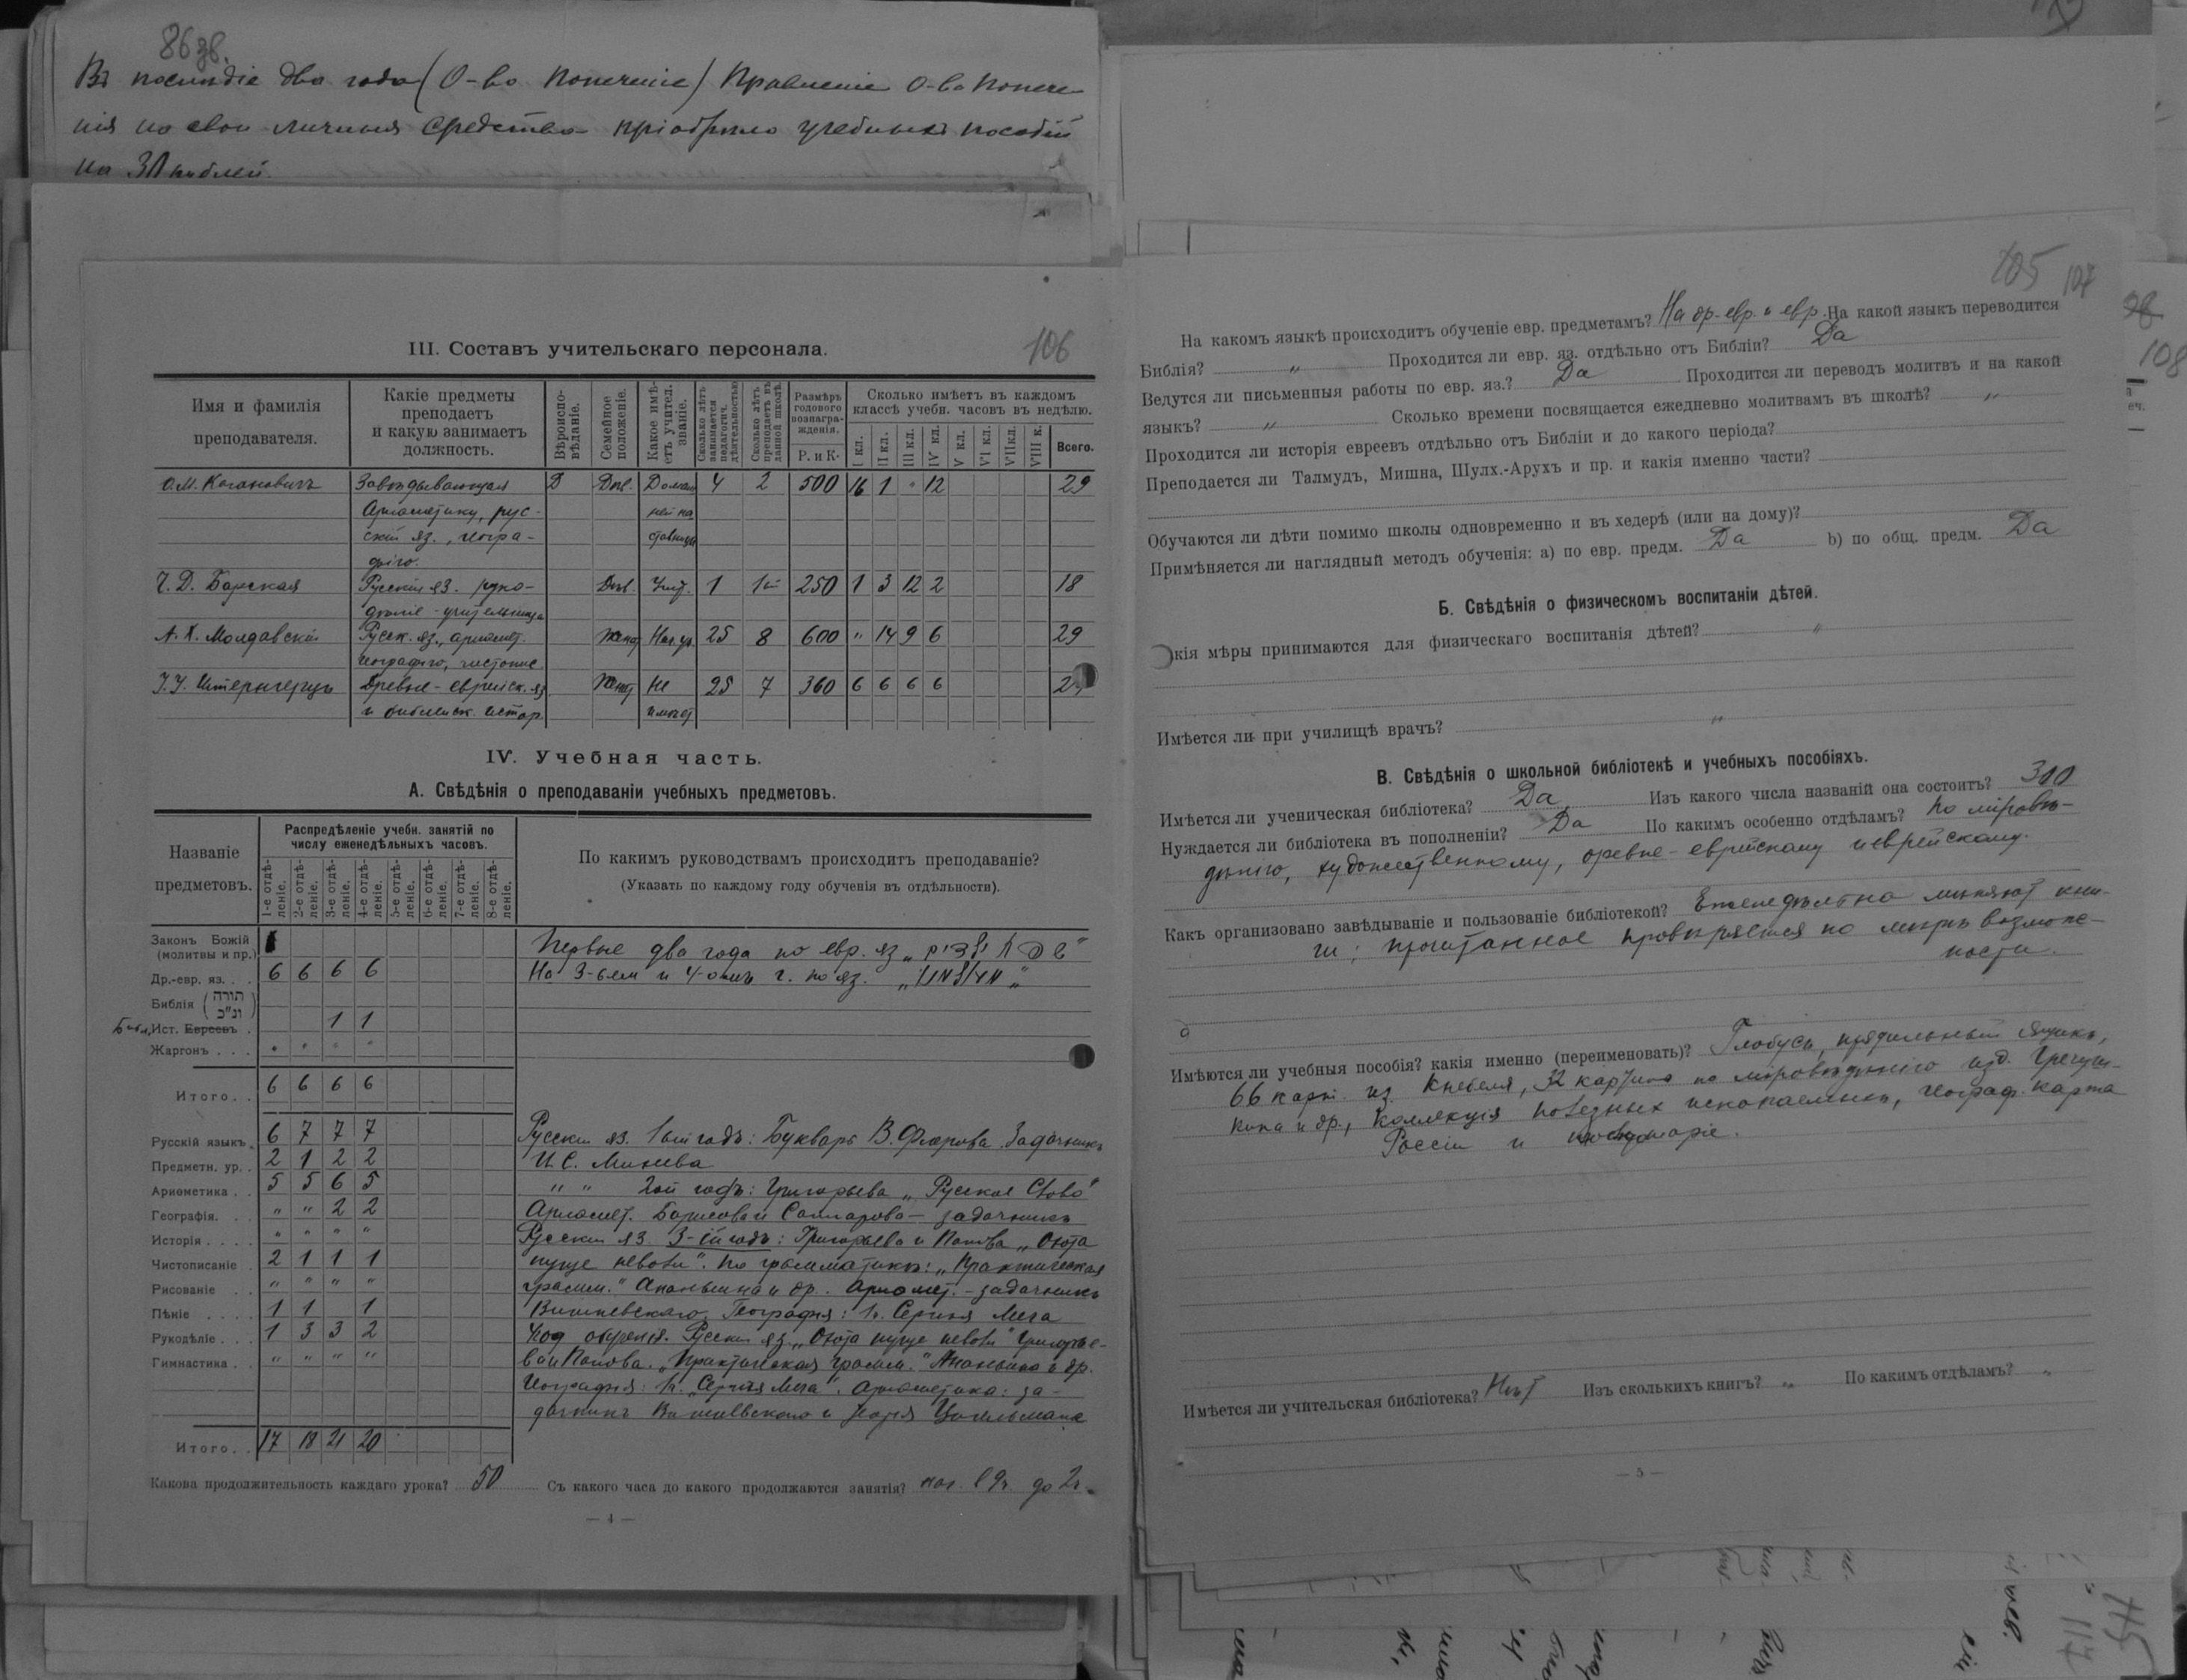 86 зв.
Въ последніе два года (О-во Попеченіе) Правленіе О-ва Попече
нія на свои личныя средства пріобрѣло учебныхъ пособій
на 30 рублей.
106
III. Составъ учительскаго персонала.
Имя и фамилія преподавателя.
Какіе предметы преподаетъ и какую занимаетъ должность.
Вѣроиспо-вѣданіе.
Семейное положеніе.
Какое имѣ-етъ учител. званіе.
Сколько лѣтъ занимается педагогич. дѣятельностью
Сколько лѣтъ преподаетъ въ данной школѣ.
Размѣръ годового вознагра-жденія.
Р. и К.
Сколько имѣетъ въ каждомъ классѣ учебн. часовъ въ недѣлю.
I кл. II кл. III кл. IV кл. V кл. VI кл. VII кл. VIII к. Всего.
О.М. Кагановичъ Завѣдывающая Д Дѣв. Домаш 4 2 500 16 1 " 12 29
Ариѳметику, рус- ней на
скій яз., геогра- ставницы
фію.
Ч. Д. Барская Русскій яз. руко- Дѣв. Учит. 1 1й 250 1 3 12 2 18
дѣліе - учительница
А. Х. Молдавскій Русск. яз., ариѳмет. Женат 25 8 600 " 14 9 6 29
географію, чистопис.
Древне-еврейск. яз Женат Не 25 7 360 6 6 6 6
и библейск. истор. имѣет
IV. Учебная часть.
А. Свѣдѣнія о преподаваніи учебныхъ предметовъ.
Названіе предметовъ.
Распредѣленіе учебн. занятій по числу еженедѣльныхъ часовъ.
1-е отдѣ-леніе. 2-е отдѣ-леніе. 3-е отдѣ-леніе. 4-е отдѣ-леніе. 5-е отдѣ-леніе. 6-е отдѣ-леніе. 7-е отдѣ-леніе. 8-е отдѣ-леніе.
По какимъ руководствамъ происходитъ преподаваніе?
(Указать по каждому году обученія въ отдѣльности).
Законъ Божій (молитвы и пр.) Первые два года по евр. яз
Др.-евр. яз. . . 6 6 6 6 На 3-ьем и 4-омъ г. по яз.
Библія (תורה ונ"כ)
Библ. Ист. Евреевъ . 1 1
Жаргонъ . . . " " " "
Итого. . 6 6 6 6
Русскій языкъ. 6 7 7 7 Русскій яз. 1ый годъ: Букварь В. Флерова. Задачникъ
Предметн. ур. . 2 1 2 2 И. С. Минева
Ариѳметика . . 5 5 6 5 " " 2ой годъ: Григорьева „Русское Слово"
Географія. . . " " 2 2 Ариѳмет. Борисова и Сатарова - задачникъ
Исторія . . . . " " " " Русскій яз. 3-ій годъ: Григорьева и Попова „Охота
Чистописаніе . 2 1 1 1 пуще неволи". По грамматикѣ: „Практическая
Рисованіе . . " " " " грамм." Ананьина и др. Ариѳмет. - задачникъ
Пѣніе . . . . 1 1 1 Вишневскаго. Географія: К. Сергія Меча
Рукодѣліе . . . 1 3 3 2 4 год обученія. Русскій яз. „Охота пуще неволи" Григорье-
Гимнастика . . " " " " ва и Попова. „Практическая грамм." Ананьина и др.
Географія: К. „Сергѣя Меча". Ариѳметика: за-
дачникъ Вишневскаго и
Итого. . 17 18 21 20
Какова продолжительность каждаго урока? 50 Съ какого часа до какого продолжаются занятія? нач. 9ч. до 2ч.
— 4 —
105 107
108
На какомъ языкѣ происходитъ обученіе евр. предметамъ? На др.-евр. и евр. На какой языкъ переводится
Библія? " Проходится ли евр. яз. отдѣльно отъ Библіи? Да
Ведутся ли письменныя работы по евр. яз.? Да Проходится ли переводъ молитвъ и на какой
языкъ? " Сколько времени посвящается ежедневно молитвамъ въ школѣ? "
Проходится ли исторія евреевъ отдѣльно отъ Библіи и до какого періода?
Преподается ли Талмудъ, Мишна, Шулх.-Арухъ и пр. и какія именно части?
Обучаются ли дѣти помимо школы одновременно и въ хедерѣ (или на дому)?
Примѣняется ли наглядный методъ обученія: а) по евр. предм. Да b) по общ. предм. Да
Б. Свѣдѣнія о физическомъ воспитаніи дѣтей.
кія мѣры принимаются для физическаго воспитанія дѣтей? "
Имѣется ли при училищѣ врачъ? "
В. Свѣдѣнія о школьной библіотекѣ и учебныхъ пособіяхъ.
Имѣется ли ученическая библіотека? Да Изъ какого числа названій она состоитъ? 300
Нуждается ли библіотека въ пополненіи? Да По какимъ особенно отдѣламъ? По міровѣ-
дѣнію, художественному, древне-еврейскому и еврейскому.
Какъ организовано завѣдываніе и пользованіе библіотекой? Еженедѣльно мѣняютъ кни-
ги; прочитанное провѣряется по мѣрѣ возмож-
ности.
Имѣются ли учебныя пособія? какія именно (переименовать)? Глобусъ, ящикъ,
66 карт. из. Кнебеля, 32 картины по міровѣдѣнію изд. Гречуш-
кина и др., коллекція полезныхъ ископаемыхъ, географ. карта
Россіи и полушарія.
Имѣется ли учительская библіотека? Нѣт Изъ сколькихъ книгъ? " По какимъ отдѣламъ? "
— 5 —
117